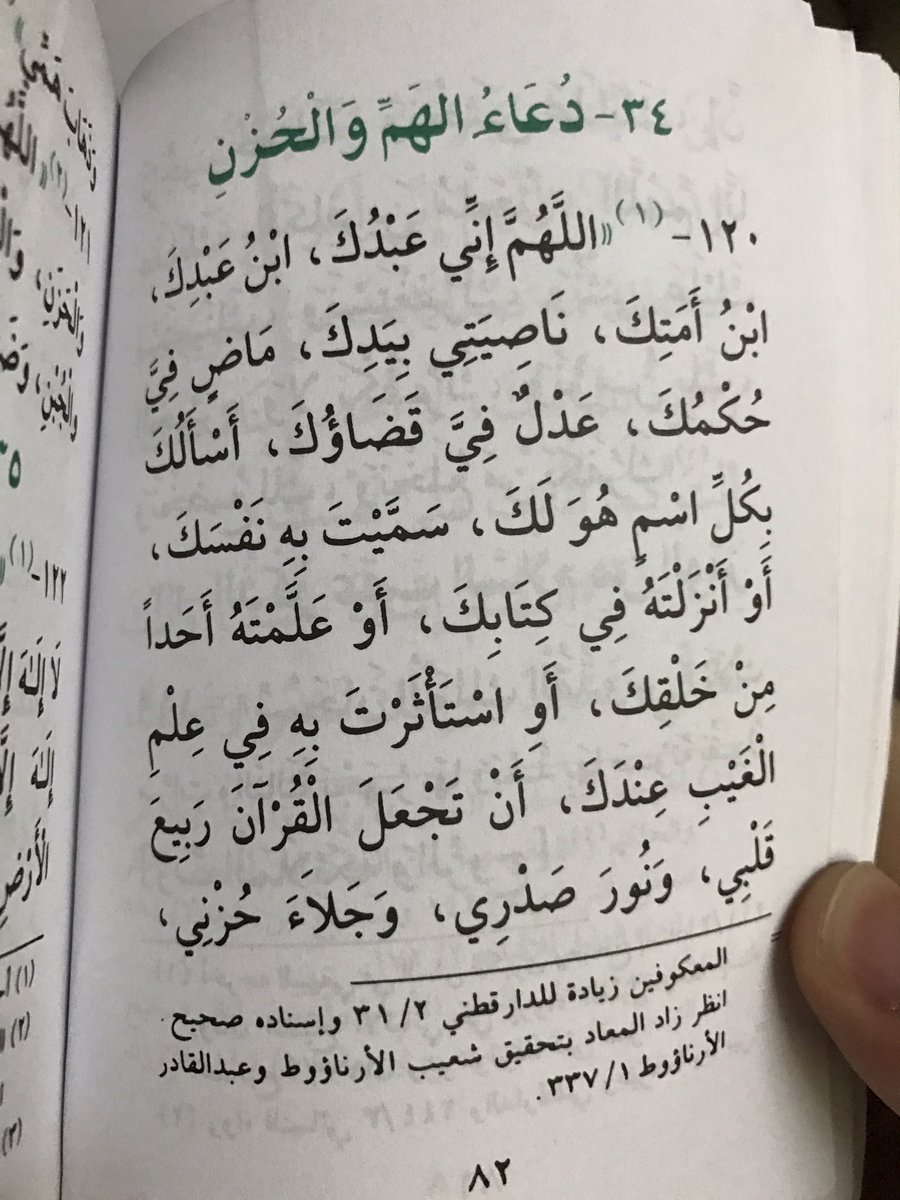 ٣٤- دُعَاءُ الهَمِّ وَالْحُزْنِ
١٢٠-(١) «اللَّهُمَّ إِنِّي عَبْدُكَ، ابْنُ عَبْدِكَ،
ابْنُ أَمَتِكَ، نَاصِيَتِي بِيَدِكَ، مَاضٍ فِيَّ
حُكْمُكَ، عَدْلٌ فِيَّ قَضَاؤُكَ، أَسْأَلُكَ
بِكُلِّ اسْمٍ هُوَ لَكَ، سَمَّيْتَ بِهِ نَفْسَكَ،
أَوْ أَنْزَلْتَهُ فِي كِتَابِكَ، أَوْ عَلَّمْتَهُ أَحَداً
مِنْ خَلْقِكَ، أَوِ اسْتَأْثَرْتَ بِهِ فِي عِلْمِ
الْغَيْبِ عِنْدَكَ، أَنْ تَجْعَلَ الْقُرْآنَ رَبِيعَ
قَلْبِي، وَنُورَ صَدْرِي، وَجَلاَءَ حُزْنِي،
المعكوفين زيادة للدارقطني ٣١/٢ وإسناده صحيح.
انظر زاد المعاد بتحقيق شعيب الأرناؤوط وعبدالقادر
الأرناؤوط ٣٣٧/١.
٨٢
١٢١-(٢)
وَالْحَزَنِ،
١٢٢-(١)
لَا إِلَهَ
الْأَرْضِ
(١)
(٢)
(٣)